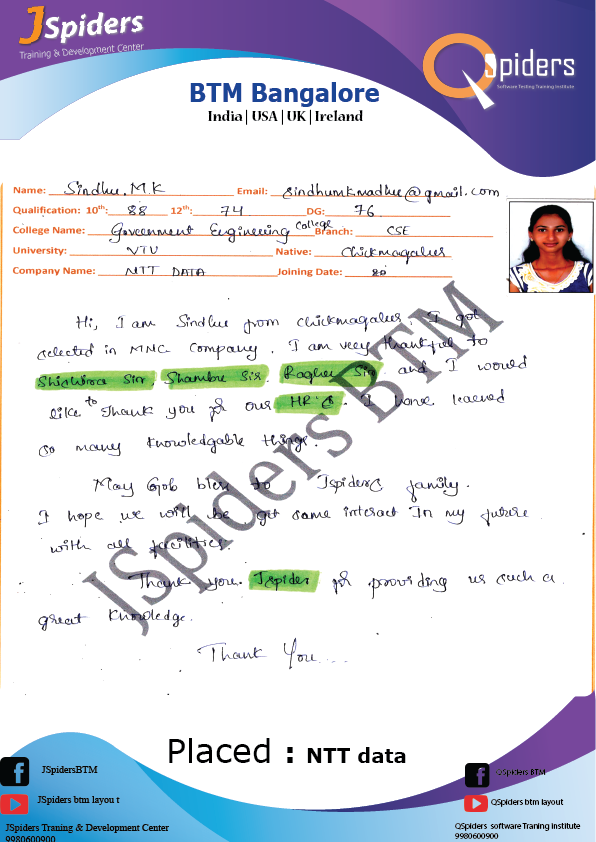 JSpiders
Training & Development Center
QSpiders
Software Testing Training Institute
BTM Bangalore
India | USA | UK | Ireland
Name: Sindhu.M.K Email: sindhumkmadhu@gmail.com
Qualification: 10th: 88 12th: 74 DG: 76
College Name: Government Engineering College Branch: CSE
University: VTU Native: Chickmagalur
Company Name: NTT DATA Joining Date:
Hi, I am Sindhu from chickmagalur. I got
selected in MNC Company. I am very thankful to
Sir, Shambu Sir, Raghu Sir and I would
like to Thank you for our HR's. I have learned
so many knowledgable things.
May God bless to Jspiders family.
I hope we will be get same interact In my future
with all facilities.
Thank you Jspider for providing us such a
great knowledge.
Thank You....
JSpiders BTM
Placed : NTT data
JSpidersBTM
QSpiders BTM
JSpiders btm layou t
QSpiders btm layout
JSpiders Traning & Development Center
9980600900
QSpiders software Traning Institute
9980600900